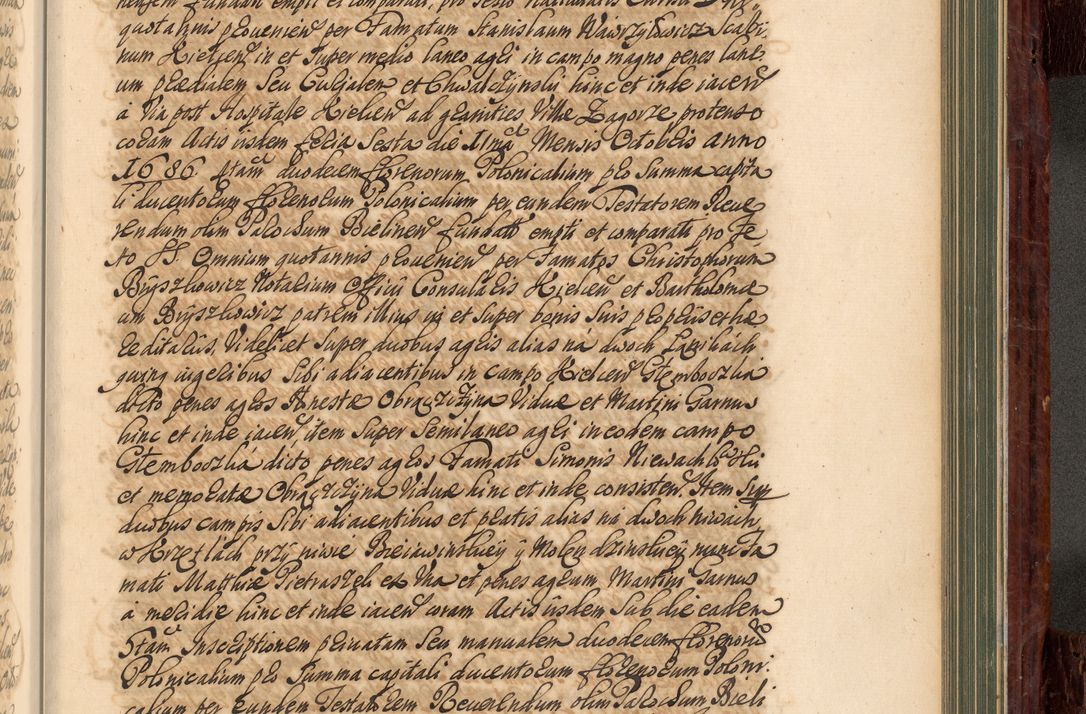 quotannis proveniens per Famatum Stanislaum Wawrzyłowicz Scabi:
num Kielcen: in et super medio laneo agri in campo magno penes lane:
um prædialem seu Culejalen et Chwalczynskij hinc et inde iacens
a Via post Hospitale Kielcen ad granities Villæ Zagorze protenso
coram Actis iisdem feria Sexta die 11mâ Mensis Octobris anno
1686 4tam duodecem florenorum Polonicalium pro Summa capita
li ducentorum florenorum Polonicalium per eundem Testatorem Reve
rendum olim Parochum Bielinen fundati empti et comparati pro Fe
sto SS. Omnium quotannis provenien per Famatos Christophorum
Bryszkowicz Notarium Officii Consularis Kielcen et Bartholomæ
um Bryszkowicz patrem illius in et super bonis suis proprüs et hæ
reditarüs, Videlicet super duobus agris alias na dwoch Łazibach
quinq iugeribus sibi adiacentibus in campo Kielcen Głemboczka
dicto penes agros Anestæ Obrączczyna Viduæ et Martini Garnus
hinc et inde iacen item super Semilaneo agri in eodem campo
Głemboczka dicto penes agros Famati Simonis Niewachlo
et memoratæ Obrączczyna Viduæ hinc et inde consisten. Item sup
duobus campis sibi adiacentibus et pratis alias na dwoch niwach
w Krzetlach przy niwie y nunc Fa
mati Matthiæ Pietraszek ex Una et penes agrum Martini Garnus
a meridie hinc et inde iacen coram Actis iisdem sub die eadem
5tam Inscriptionem privatam seu manualem duodecem florenoru
Polonicalium pro Summa capitali ducentorum florenorum Poloni:
calium per eundem Testatorem Reverendum olim Parochum Bieli